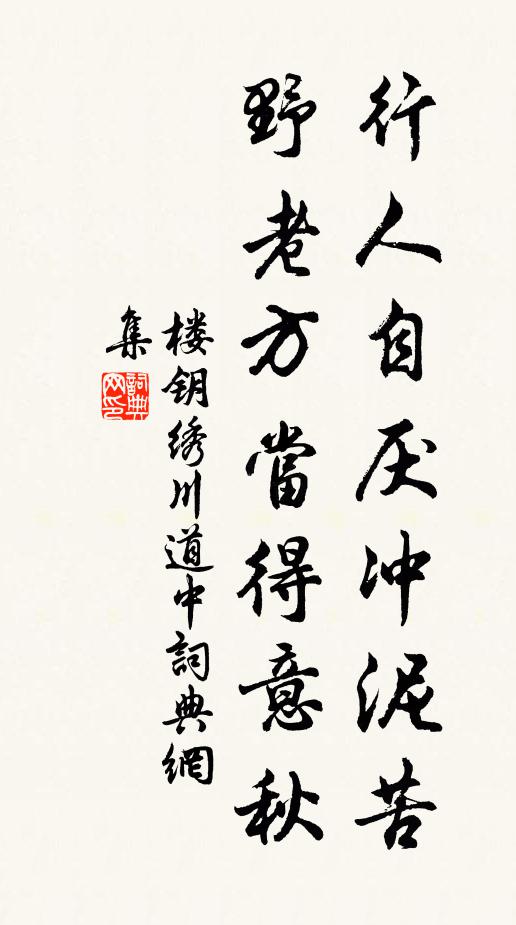 行人自厌冲泥苦
野老方當得意秋
楼钥绣川道中詞典網
集
詞典网印